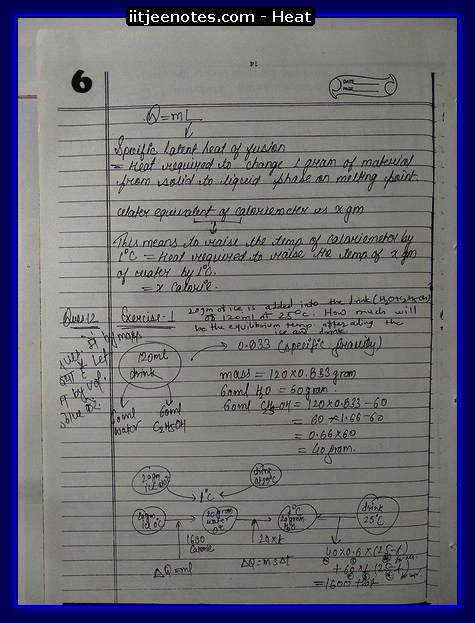 iitjeenotes.com - Heat
14
6
DATE
PAGE
Q = mL
Specific Latent heat of fusion
= Heat required to change 1 gram of material
from solid to liquid phase on melting point.
Water equivalent of caloriemeter is x gm
This means to raise the temp of caloriemeter by
1°C = Heat required to raise the temp of x gm
of water by 1°C.
= x calorie.
Ques 12 Exercise-1
20gm of ice is added into the drink (H2O + C2H5OH)
of 120ml at 25°C. How much will
be the equilibrium temp. after adding the
ice and drink
by mass
Let
by vol.
120ml
drink
0.833 (specific gravity)
60ml
water
60ml
C2H5OH
mass = 120 x 0.833 gram
60ml H2O = 60 gram
60ml C2H5OH = 120 x 0.833 - 60
= 60 x 1.66 - 60
= 0.66 x 60
= 40 gram.
20gm
ice 0°C
drink
t°C
20gm
ice 0°C
20gram
water
0°C
t°C
20gram
H2O
drink
25°C
1600
calorie
20xt
ΔQ = mL
ΔQ = msΔt
40 x 0.6 x (25-t)
+ 60 x 1 (25-t)
= 1600 + 20t